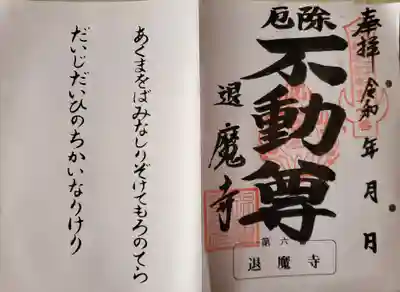 奉拝 令和 年 月 日
厄除
不動尊
退魔寺
第六
退魔寺
あくまをばみなしりぞけてもろのてら
だいじだいひのちかいなりけり